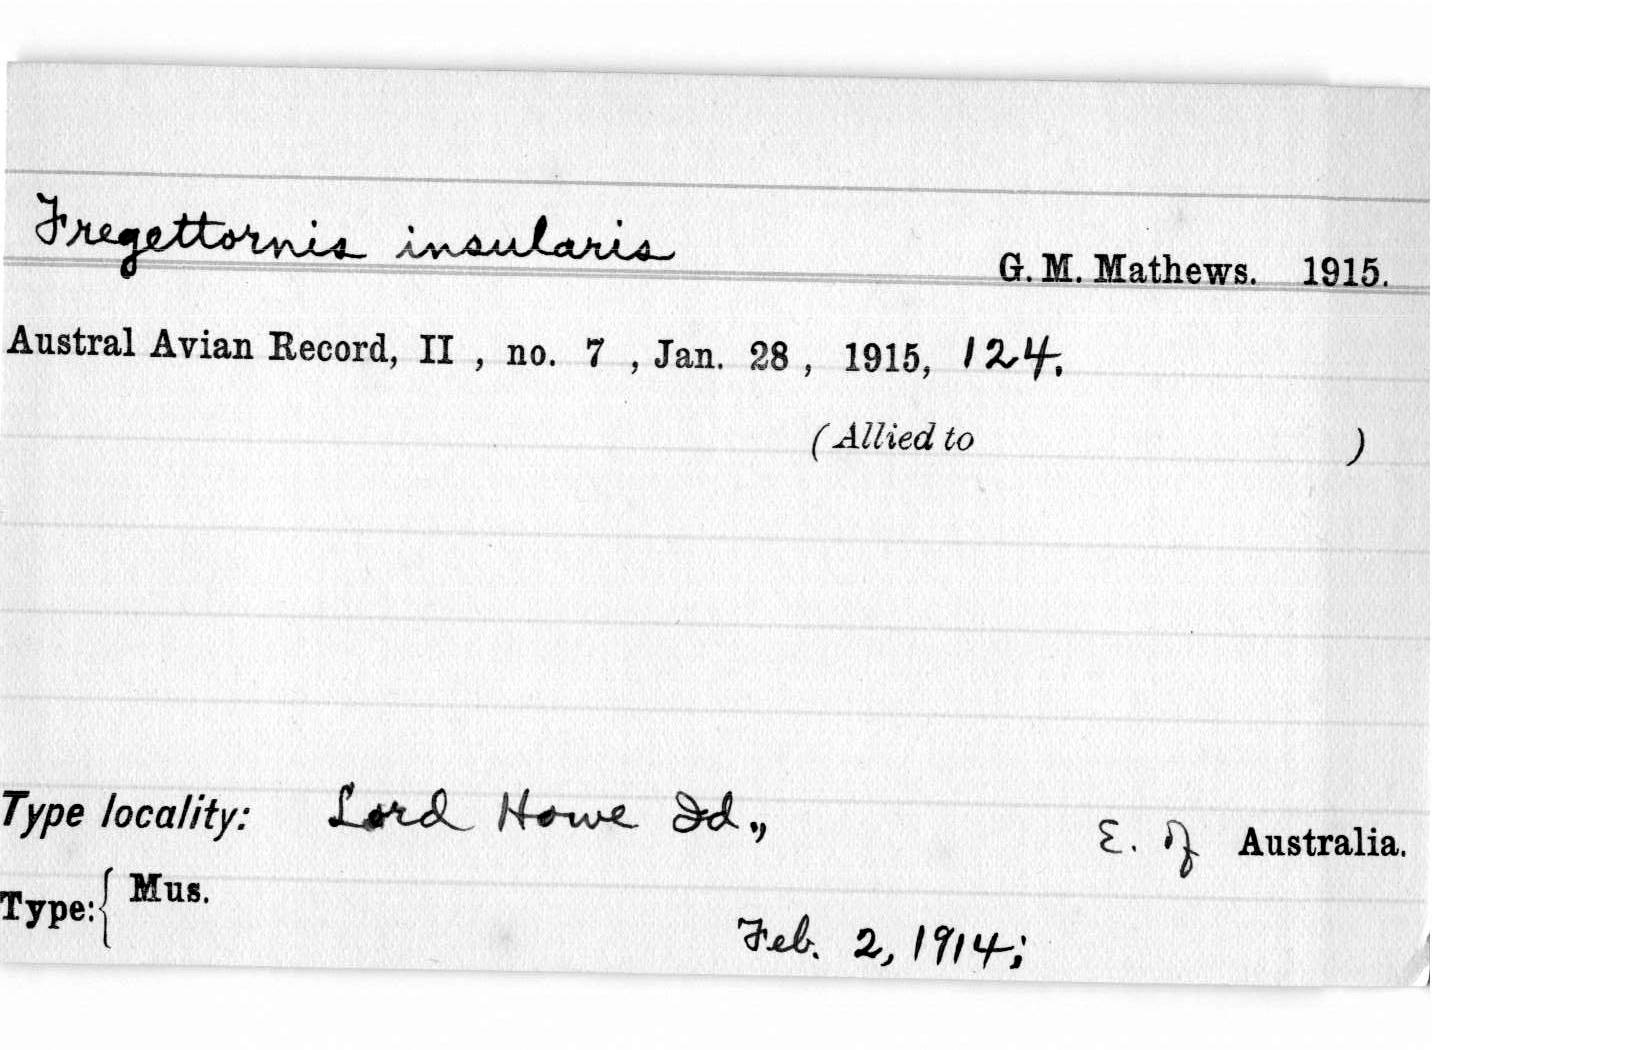 Fregettornis insularis
G. M. Mathews. 1915.
Austral Avian Record, II , no. 7 , Jan. 28 , 1915, 124.
(Allied to )
Type locality: Lord Howe Id., E. of Australia.
Type: { Mus.
Feb. 2, 1914;